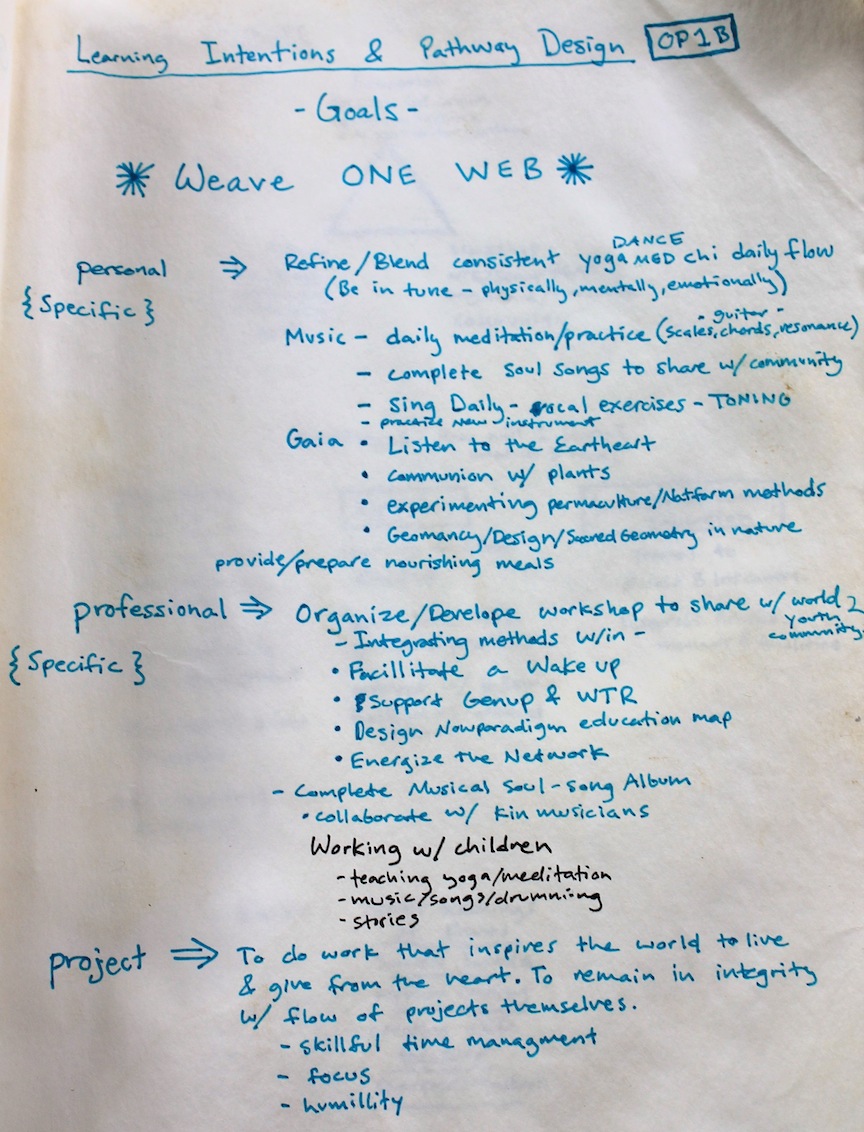 Learning Intentions & Pathway Design OP1B
- Goals -
Weave ONE WEB
DANCE
personal ⇒ Refine/Blend consistent yoga MED chi daily flow
{Specific} (Be in tune - physically, mentally, emotionally)
- guitar -
Music - daily meditation/practice (scales, chords, resonance)
- complete Soul Songs to share w/ community
- Sing Daily - vocal exercises - TONING
- practice New instrument
Gaia • Listen to the Eartheart
• communion w/ plants
• experimenting permaculture/Nat.farm methods
• Geomancy/Design/Sacred Geometry in nature
provide/prepare nourishing meals
professional ⇒ Organize/Develope workshop to share w/ world 2
youth
{Specific} - Integrating methods w/in - community
• Facillitate a Wake up
• Support Genup & WTR
• Design Nowparadigm education map
• Energize the Network
- Complete Musical Soul-song Album
• collaborate w/ kin musicians
Working w/ children
- teaching yoga/meditation
- music/songs/drumning
- stories
project ⇒ To do work that inspires the world to live
& give from the heart. To remain in integrity
w/ flow of projects themselves.
- skillful time managment
- focus
- humillity